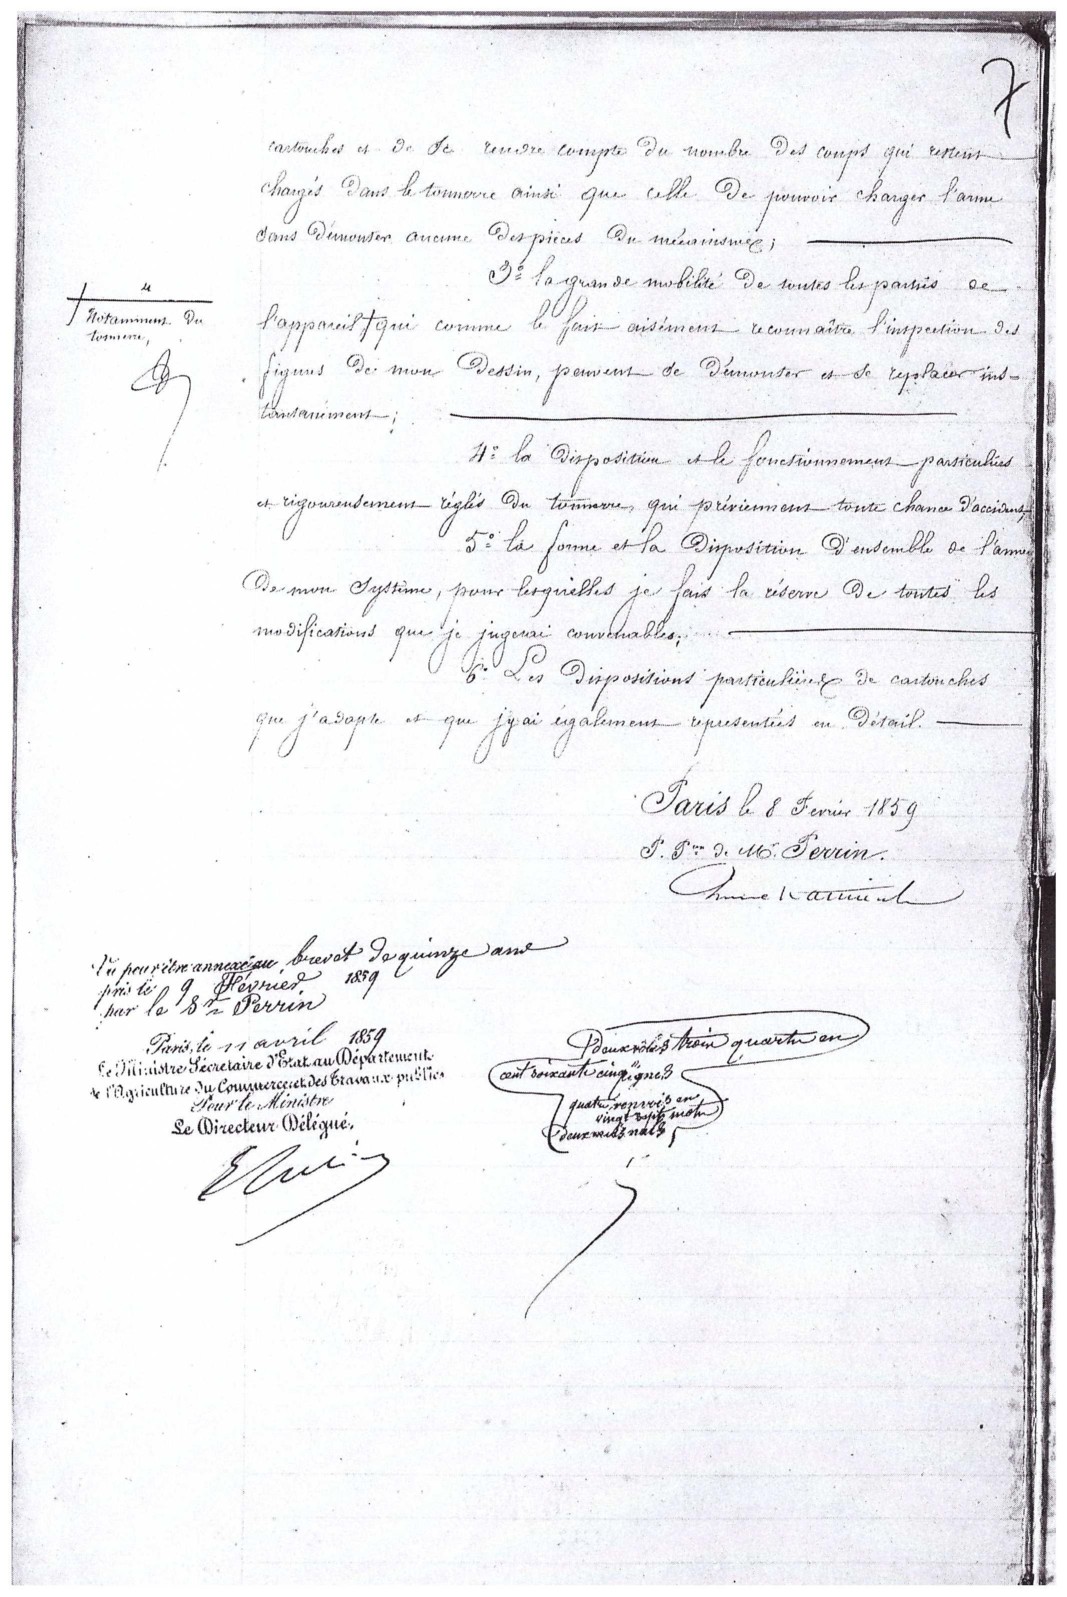 7
cartouches et de se rendre compte du nombre des coups qui restent
chargés dans le tonnerre ainsi que celle de pouvoir charger l'arme
sans démonter aucune des pièces du mécanisme;
3º la grande mobilité de toutes les parties de
l'appareil † qui comme le fait aisément reconnaître l'inspection des
figures de mon dessin, peuvent se démonter et se replacer ins-
tantanément;
† Notamment du
tonnerre,
4º la disposition et le fonctionnement particuliers
et rigoureusement réglés du tonnerre, qui préviennent toute chance d'accident,
5º la forme et la disposition d'ensemble de l'arme
de mon système, pour lesquelles je fais la réserve de toutes les
modifications que je jugerai convenables;
6º Les dispositions particulières de cartouches
que j'adopte et que j'ai également représentées en détail.
Paris le 8 Fevrier 1859
P. Pon de Mr. Perrin.
Vu pour être annexé au brevet de quinze ans
pris le 9 Février 1859
par le Sr Perrin
Paris, le 11 avril 1859
Le Ministre Secrétaire d'Etat au Département
de l'Agriculture du Commerce et des Travaux publics
Pour le Ministre
Le Directeur Délégué,
deux rôles trois quarts en
cent soixante cinq lignes
quatre renvois en
vingt sept mots
deux mots nuls